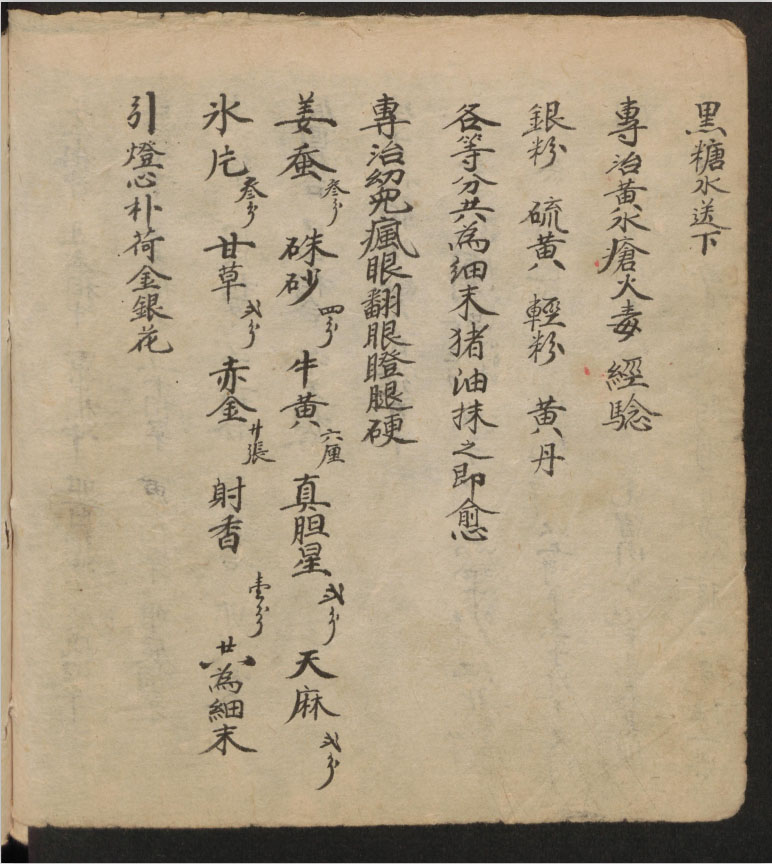 黑糖水送下
專治黃水瘡火毒 經驗
銀粉 硫黃 輕粉 黃丹
各等分共為細末猪油抹之即愈
專治幼兒瘋眼翻眼瞪腿硬
姜蚕叁分 硃砂四分 牛黃六厘 真胆星弍分 天麻弍分
氷片叁分 甘草弍分 赤金廿張 射香壹分 共為細末
引燈心朴荷金銀花